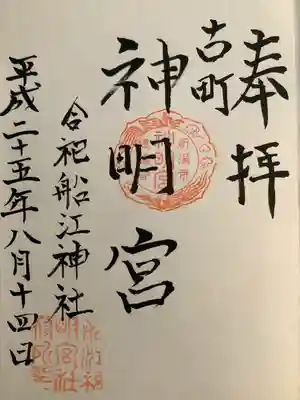 奉拝
古町
神明宮
合祀船江神社
平成二十五年八月十四日